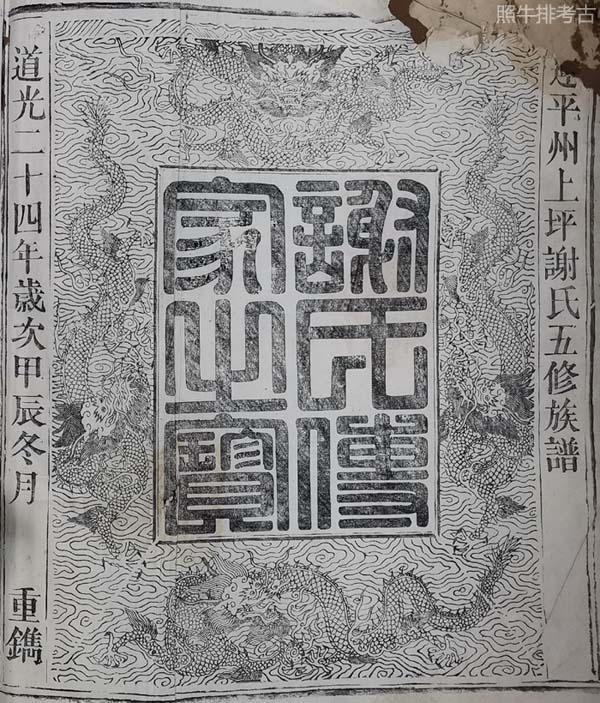 照牛排考古
連平州上坪謝氏五修族譜
謝氏傳
家之寶
道光二十四年歲次甲辰冬月 重鐫